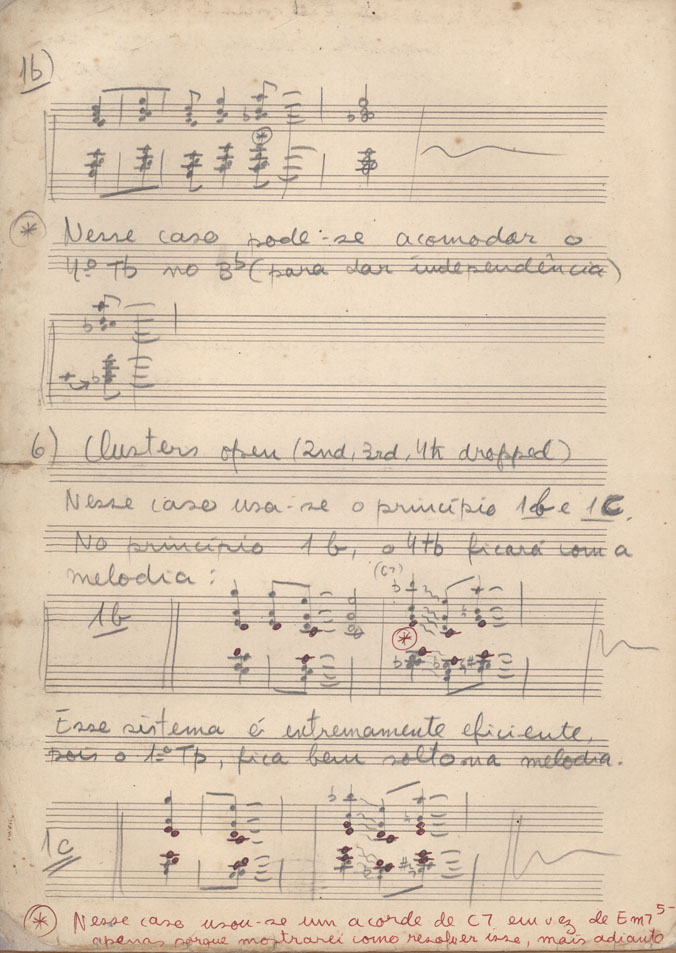 1b)
*
* Nesse caso pode-se acomodar o
4º Tb no 3b (para dar independência)
6) Clusters open (2nd, 3rd, 4th dropped)
Nesse caso usa-se o princípio 1b e 1c.
No princípio 1b, o 4tb ficará com a
melodia:
(C7)
1b
*
Esse sistema é extremamente eficiente,
pois o 1º Tp, fica bem solto na melodia.
1c
* Nesse caso usou-se um acorde de C7 em vez de Em7 5-
apenas porque mostrarei como resolver isso, mais adiante